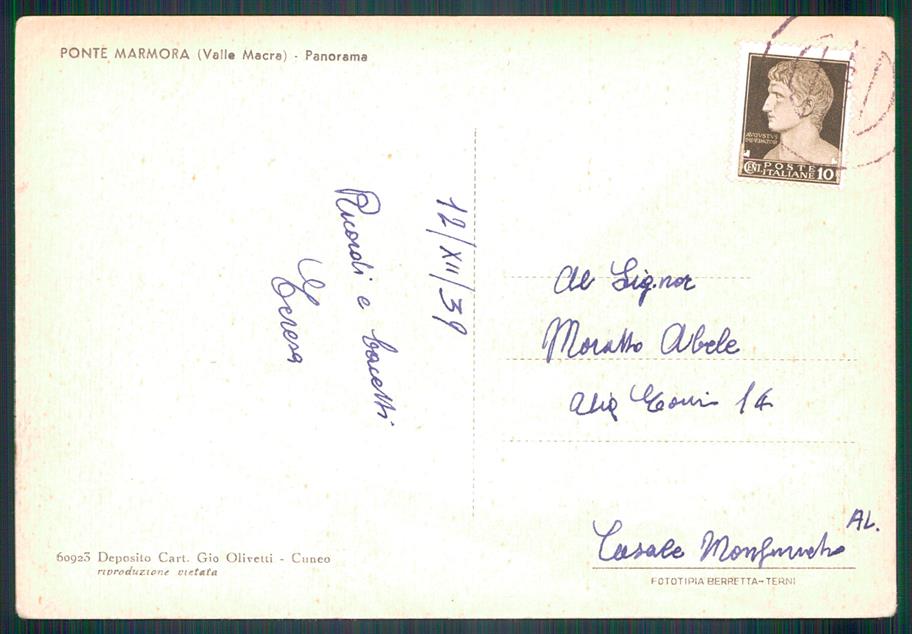 PONTE MARMORA (Valle Macra) - Panorama
AVGVSTVS
CENT. POSTE ITALIANE 10
12/XII/39
Ricordi e bacetti
Teresa
Al Signor
Moratto Abele
14
Casale Monferrato
AL.
60923 Deposito Cart. Gio Olivetti - Cuneo
riproduzione vietata
FOTOTIPIA BERRETTA-TERNI